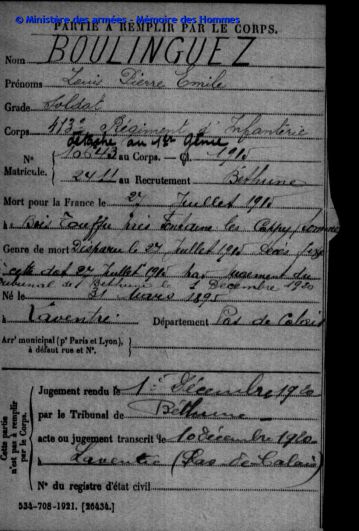 © Ministère des armées - Mémoire des Hommes
PARTIE À REMPLIR PAR LE CORPS.
Nom BOULINGUEZ
Prénoms Louis Pierre Emile
Grade Soldat
Corps 413e Régiment d'Infanterie
détaché au 1er Génie
N° 10643 au Corps. — Cl. 1915
Matricule. 2411 au Recrutement Béthune
Mort pour la France le 27 Juillet 1915
à Bois Touffu près Fontaine les Cappy, Somme
Genre de mort Disparu le 27 Juillet 1915 Décès fixé
à cette date 27 Juillet 1915 par jugement du
Tribunal de Béthune le 1 Décembre 1920
Né le 31 Mars 1895
à Laventie Département Pas de Calais
Arrt municipal (pr Paris et Lyon),
à défaut rue et N°.
Cette partie
n'est pas à remplir
par le Corps.
Jugement rendu le 1er Décembre 1920
par le Tribunal de Béthune
acte ou jugement transcrit le 10 décembre 1920
à Laventie (Pas de Calais)
N° du registre d'état civil
534-708-1921. [26434.]